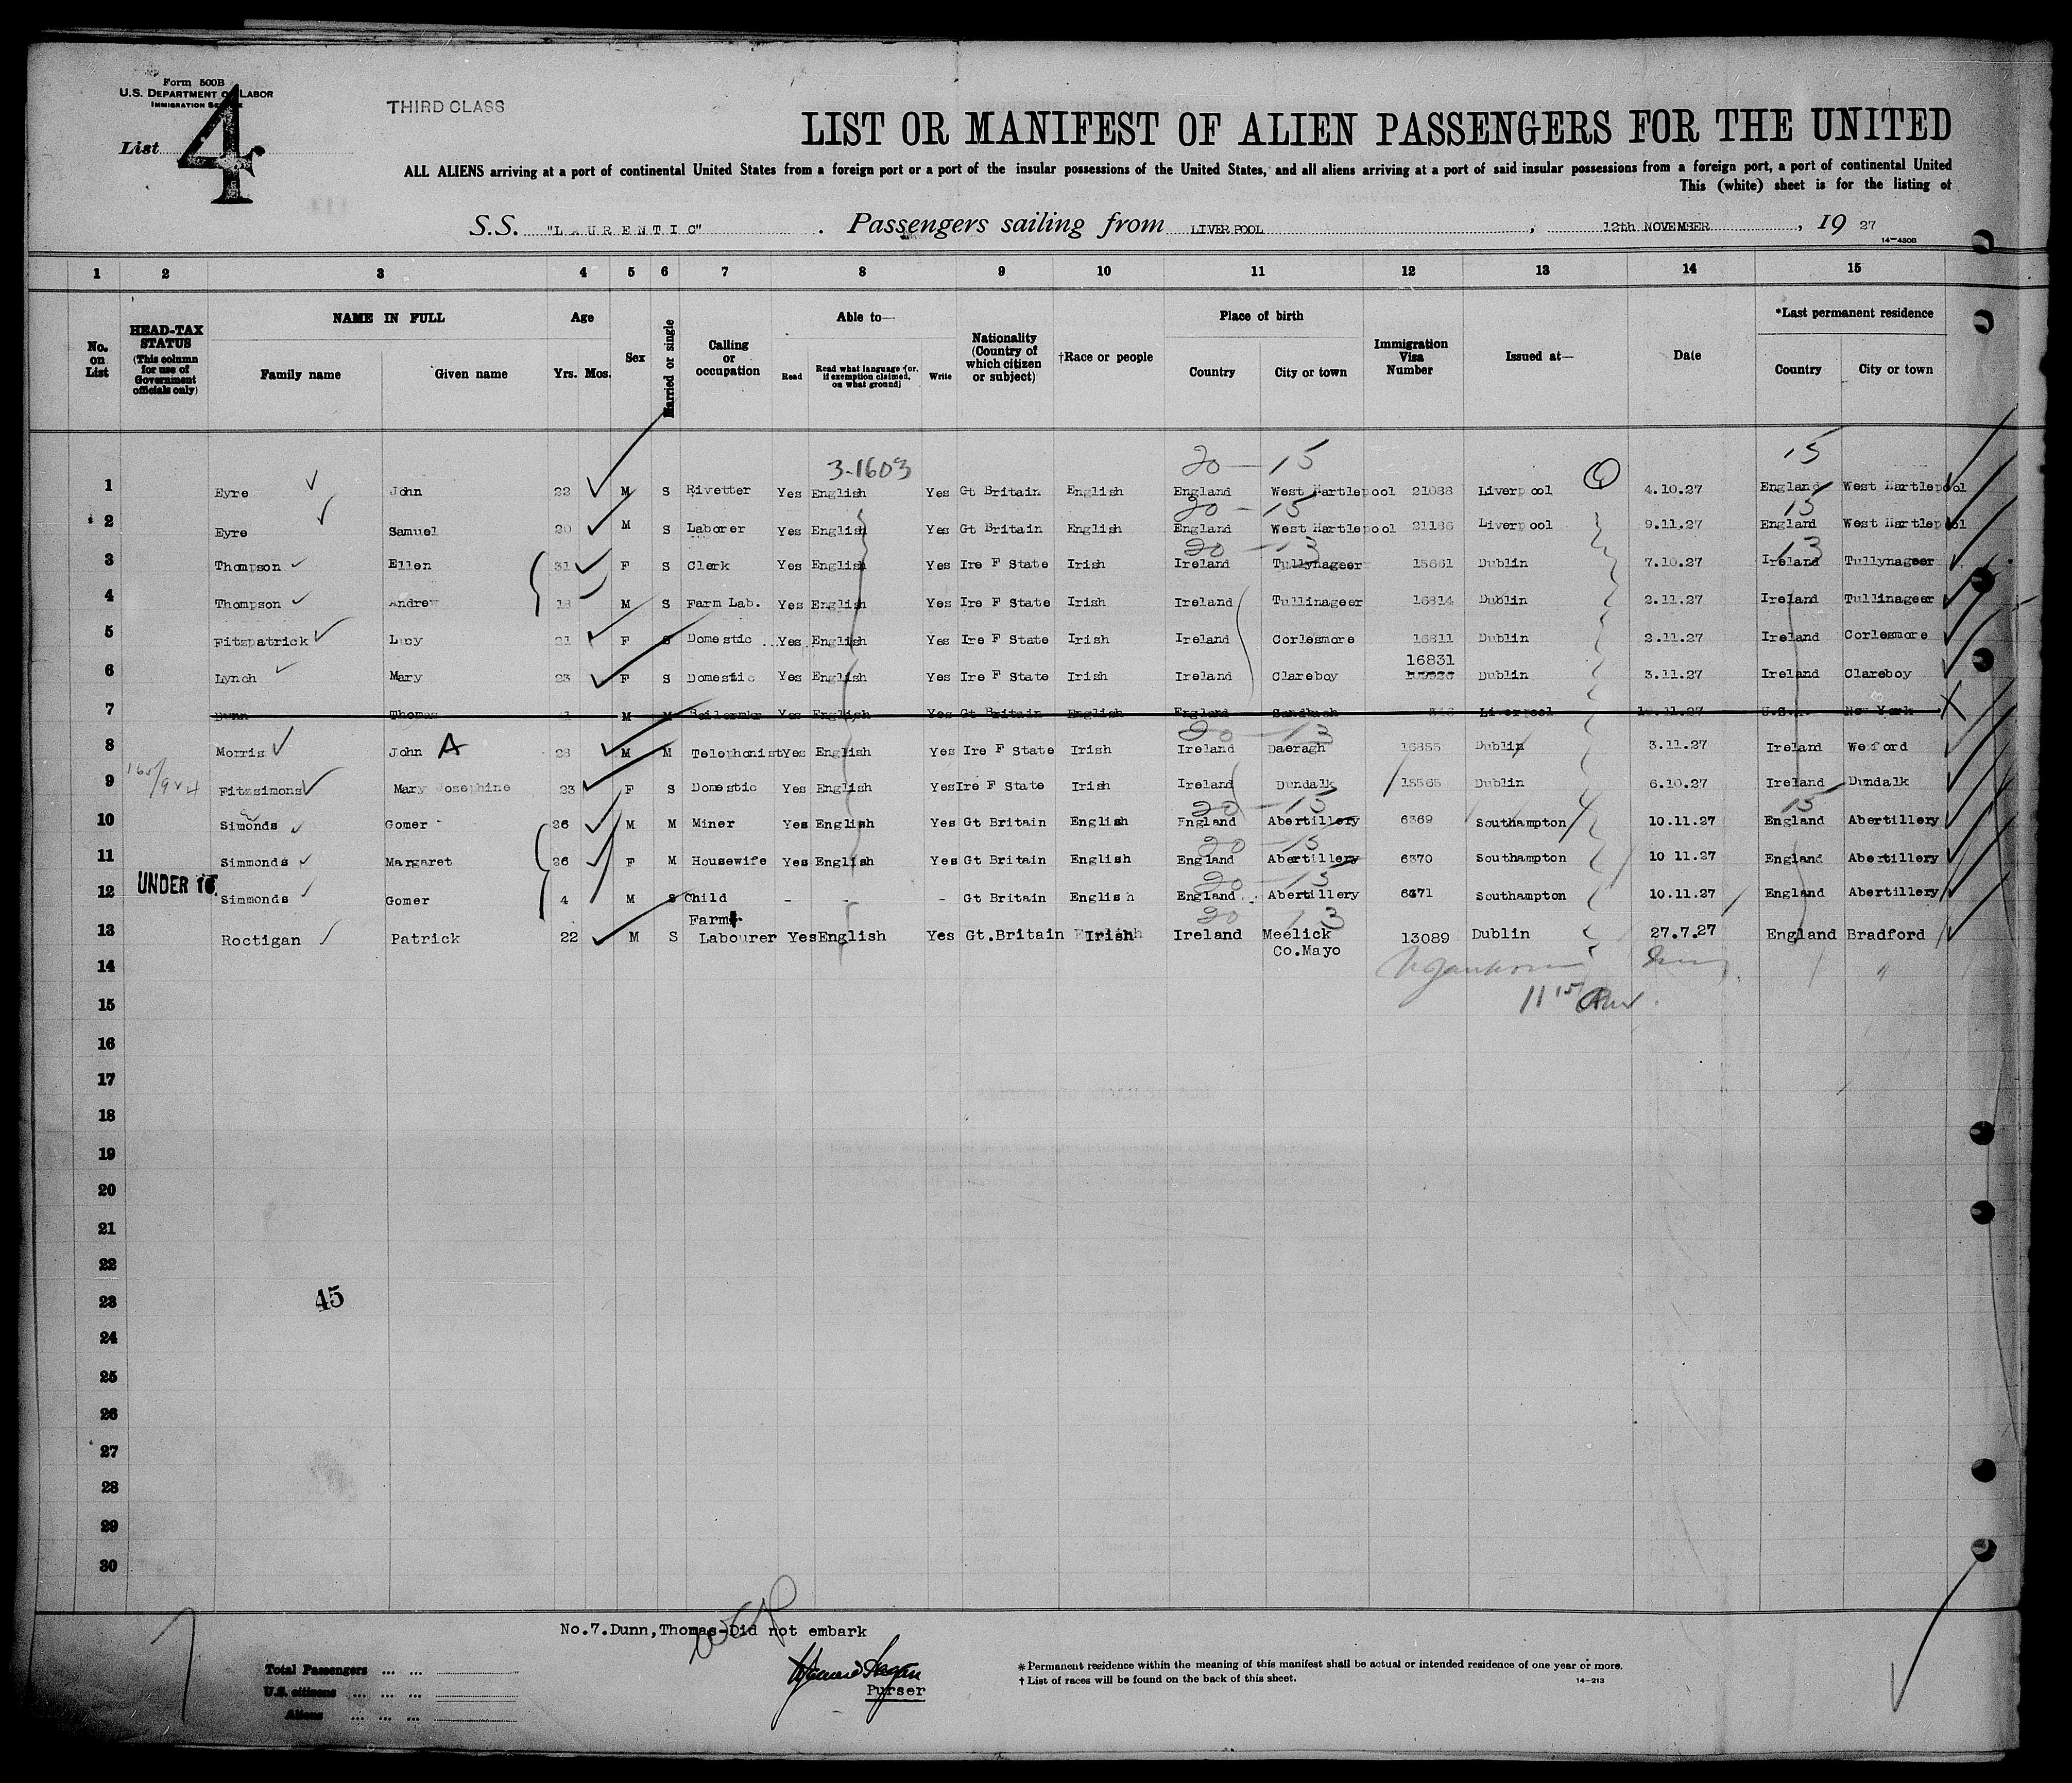 Form 500B
U.S. DEPARTMENT OF LABOR
IMMIGRATION SERVICE
THIRD CLASS
List 4
LIST OR MANIFEST OF ALIEN PASSENGERS FOR THE UNITED
ALL ALIENS arriving at a port of continental United States from a foreign port or a port of the insular possessions of the United States, and all aliens arriving at a port of said insular possessions from a foreign port, a port of continental United
This (white) sheet is for the listing of
S.S. "LAURENTIC". Passengers sailing from LIVERPOOL, 12th NOVEMBER, 19 27
14—430B
1 2 3 4 5 6 7 8 9 10 11 12 13 14 15
No. on List
HEAD-TAX STATUS (This column for use of Government officials only)
NAME IN FULL Family name Given name
Age Yrs. Mos.
Sex
Married or single
Calling or occupation
Able to— Read Read what language (or, if exemption claimed, on what ground) Write
Nationality (Country of which citizen or subject)
†Race or people
Place of birth Country City or town
Immigration Visa Number
Issued at—
Date
*Last permanent residence Country City or town
3-1603 20 — 15 15
1 Eyre John 22 M S Rivetter Yes English Yes Gt Britain English England West Hartlepool 21088 Liverpool 4.10.27 England West Hartlepool
20 - 15 15
2 Eyre Samuel 20 M S Laborer Yes English Yes Gt Britain English England West Hartlepool 21186 Liverpool 9.11.27 England West Hartlepool
20 - 13 13
3 Thompson Ellen 31 F S Clerk Yes English Yes Ire F State Irish Ireland Tullynageer 15661 Dublin 7.10.27 Ireland Tullynageer
4 Thompson Andrew 18 M S Farm Lab. Yes English Yes Ire F State Irish Ireland Tullinageer 16814 Dublin 2.11.27 Ireland Tullinageer
5 Fitzpatrick Lucy 21 F S Domestic Yes English Yes Ire F State Irish Ireland Corlesmore 16811 Dublin 2.11.27 Ireland Corlesmore
16831
6 Lynch Mary 23 F S Domestic Yes English Yes Ire F State Irish Ireland Clareboy Dublin 3.11.27 Ireland Clareboy
7 Dunn Thomas 41 M M Boilermkr Yes English Yes Gt Britain English England Sandbach Liverpool U.S.A. New York X
20 - 13
8 Morris John A 28 M M Telephonist Yes English Yes Ire F State Irish Ireland Daeragh 16855 Dublin 3.11.27 Ireland Wexford
9 Fitzsimons Mary Josephine 23 F S Domestic Yes English Yes Ire F State Irish Ireland Dundalk 15565 Dublin 6.10.27 Ireland Dundalk
20 - 15 15
10 Simonds Gomer 26 M M Miner Yes English Yes Gt Britain English England Abertillery 6369 Southampton 10.11.27 England Abertillery
20 - 15
11 Simmonds Margaret 26 F M Housewife Yes English Yes Gt Britain English England Abertillery 6370 Southampton 10 11.27 England Abertillery
20 - 15
12 UNDER 16. Simmonds Gomer 4 M S Child - - - Gt Britain English England Abertillery 6371 Southampton 10.11.27 England Abertillery
20 13
13 Roctigan Patrick 22 M S Farm Labourer Yes English Yes Gt.Britain Irish Ireland Meelick Co.Mayo 13089 Dublin 27.7.27 England Bradford
14
15
16
17
18
19
20
21
22
23
45
24
25
26
27
28
29
30
No.7.Dunn,Thomas-Did not embark
Purser
Total Passengers ... ...
U.S. citizens ... ... ...
Aliens ... ... ...
* Permanent residence within the meaning of this manifest shall be actual or intended residence of one year or more.
† List of races will be found on the back of this sheet.
14—213